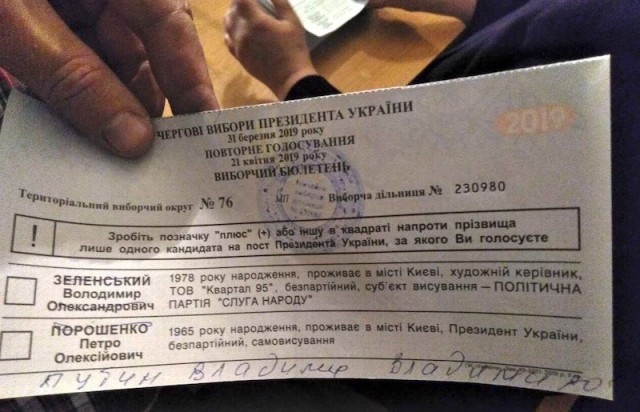 ЧЕРГОВІ ВИБОРИ ПРЕЗИДЕНТА УКРАЇНИ
31 березня 2019 року
ПОВТОРНЕ ГОЛОСУВАННЯ
21 квітня 2019 року
ВИБОРЧИЙ БЮЛЕТЕНЬ
2019
Територіальний виборчий округ № 76 МП Виборча дільниця № 230980
! Зробіть позначку "плюс" (+) або іншу в квадраті напроти прізвища
лише одного кандидата на пост Президента України, за якого Ви голосуєте
ЗЕЛЕНСЬКИЙ
Володимир
Олександрович
1978 року народження, проживає в місті Києві, художній керівник,
ТОВ "Квартал 95", безпартійний, суб'єкт висування – ПОЛІТИЧНА
ПАРТІЯ "СЛУГА НАРОДУ"
ПОРОШЕНКО
Петро
Олексійович
1965 року народження, проживає в місті Києві, Президент України,
безпартійний, самовисування
Путин Владимир Владимиро